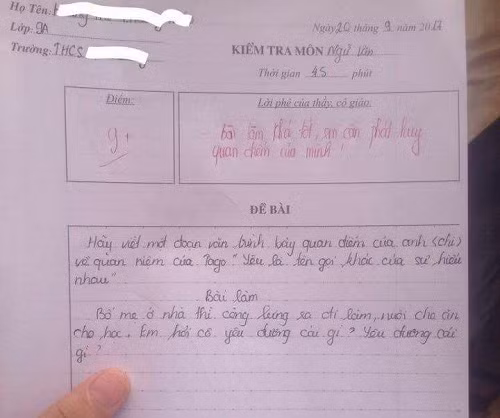 Họ Tên:
Lớp: 9A
Trường: THCS
Ngày 20 tháng 9 năm 2017
KIỂM TRA MÔN Ngữ Văn
Thời gian 45 phút
Điểm:
9+
Lời phê của thầy, cô giáo:
Bài làm khá tốt, em cần phát huy
quan điểm của mình!
ĐỀ BÀI
Hãy viết một đoạn văn trình bày quan điểm của anh (chị)
về quan niệm của Tago "Yêu là tên gọi khác của sự hiểu
nhau"
Bài làm
Bố mẹ ở nhà thì còng lưng ra đi làm, nuôi cho ăn
cho học. Em hỏi cô yêu đương cái gì? Yêu đương cái
gì?